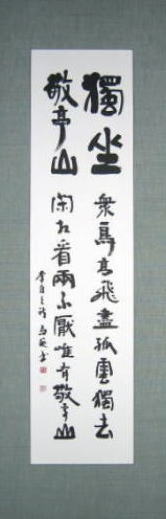 獨坐
敬亭山
衆鳥高飛盡孤雲獨去
閑相看兩不厭唯有敬亭山
李白之詩